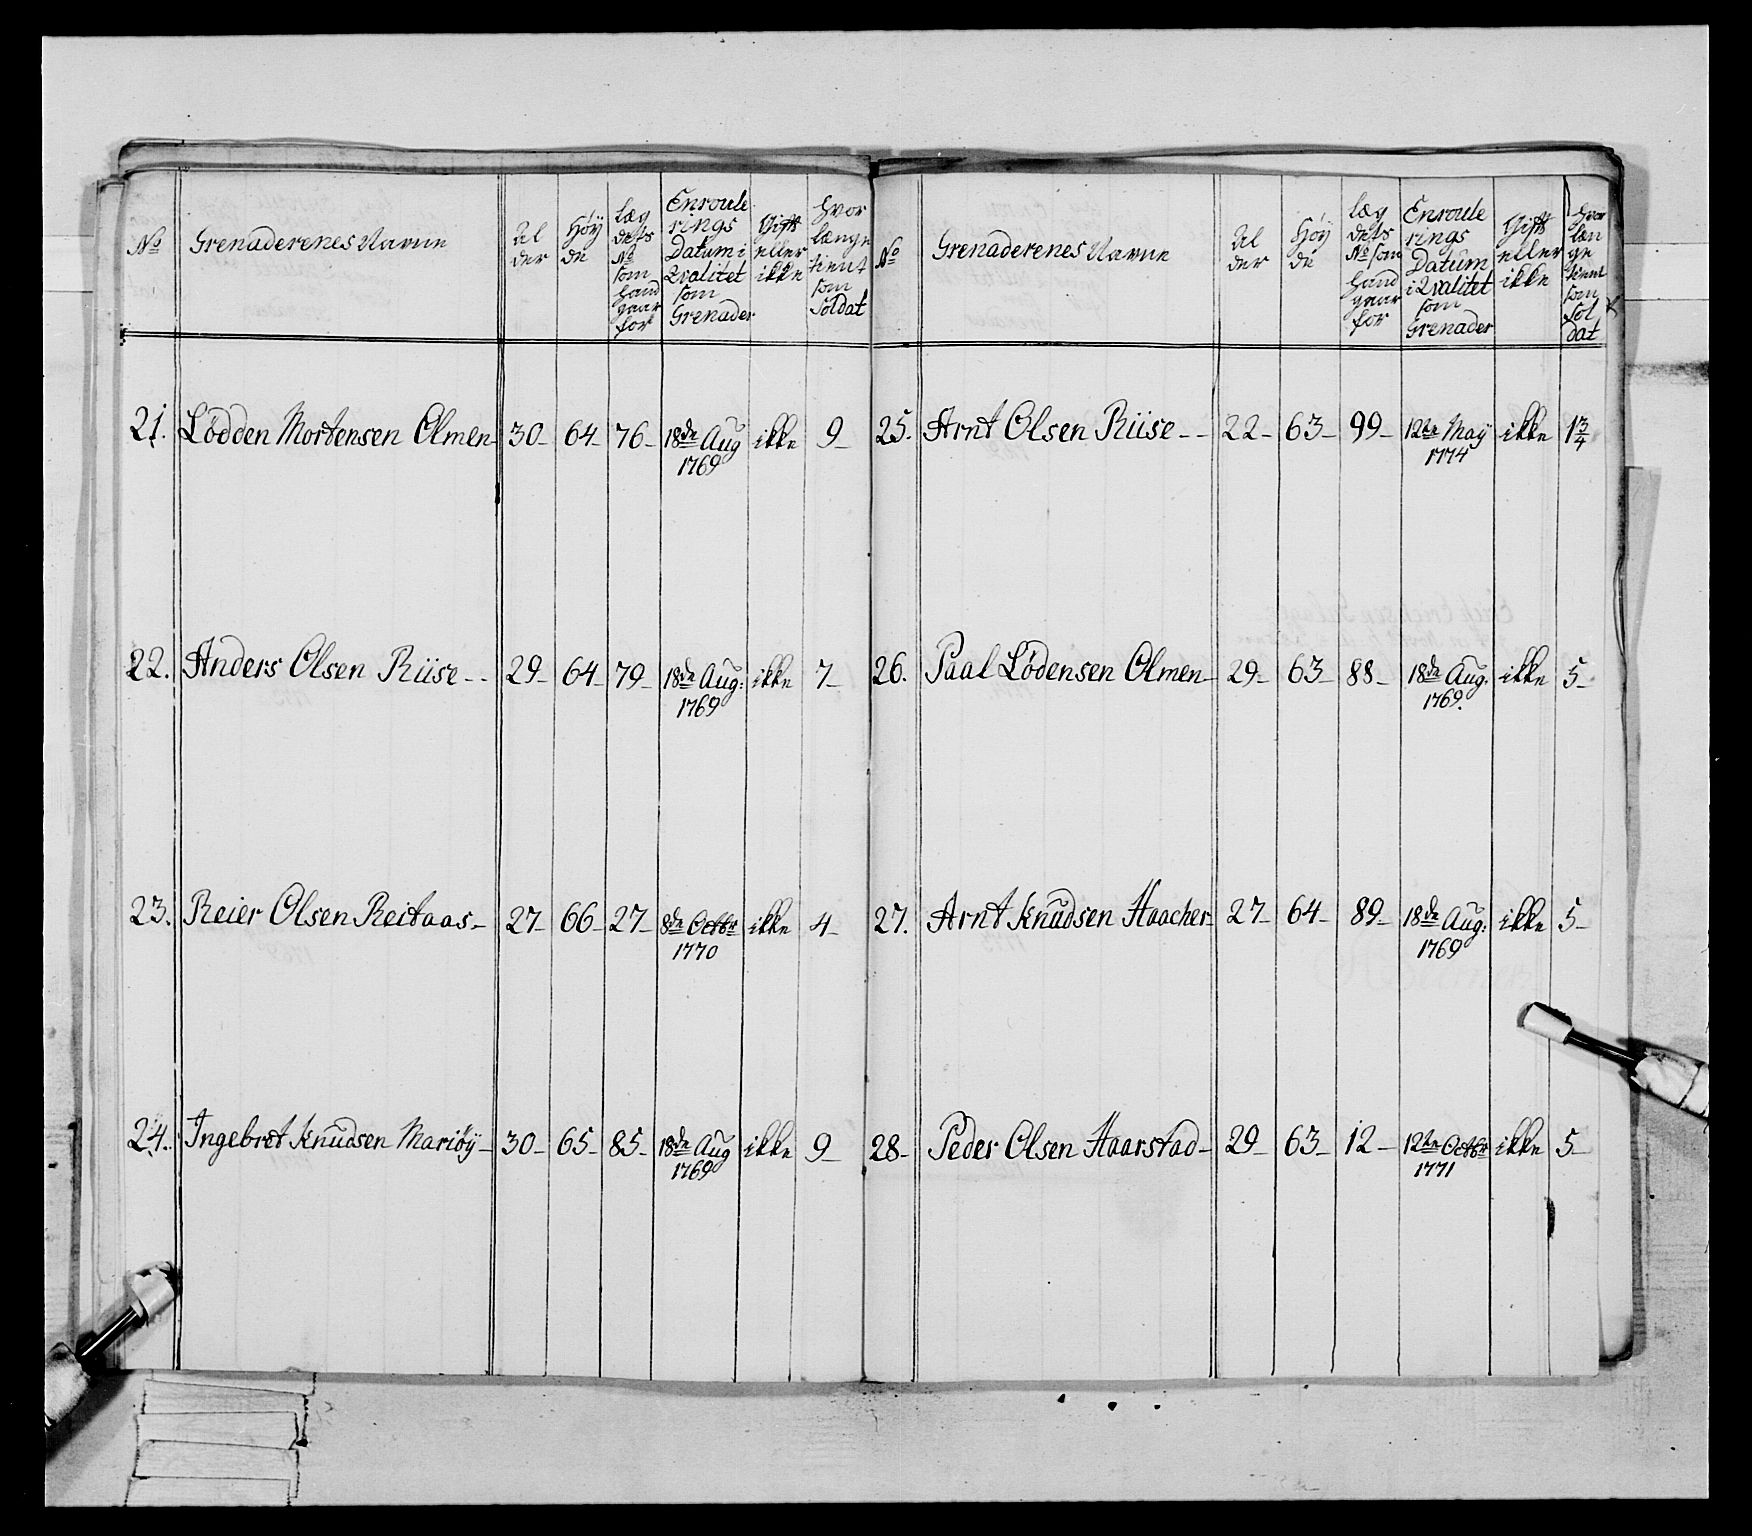 No
Grenaderenes Navne
Al
der
Høy
de
læg
dets
No
som
hand
gaar
for
Enroule
rings
Datum i
Qvalitet
som
Grenader
Gift
eller
ikke
hvor
længe
tient
som
Soldat
21. Lødden Mortensen Olmen- 30- 64- 76- 18de Aug ikke 9-
1769
22. Anders Olsen Riise-- 29- 64- 79- 18de Aug: ikke 7-
1769
23. Reier Olsen Reitaas- 27- 66- 27- 8de Octbr ikke 4-
1770
24. Ingebret Knudsen Mariøy- 30- 65- 85- 18de Aug ikke 9-
1769
No
Grenaderenes Navne
Al
der
Høy
de
læg
dets
No som
hand
gaar
for
Enroule
rings
Datum
i Qvalitet
som
Grenader
Gift
eller
ikke
hvor
læn
ge
tient
som
Sol
dat
25. Arnt Olsen Riise-- 22- 63- 99- 12te May ikke 1 3/4
1774
26. Paal Lødensen Olmen- 29- 63- 88- 18de Aug. ikke 5-
1769.
27. Arnt Knudsen Haacher- 27- 64- 89- 18de Aug: ikke 5-
1769
28- Peder Olsen Haarstad- 29- 63- 12- 12te Octbr ikke 5-
1771